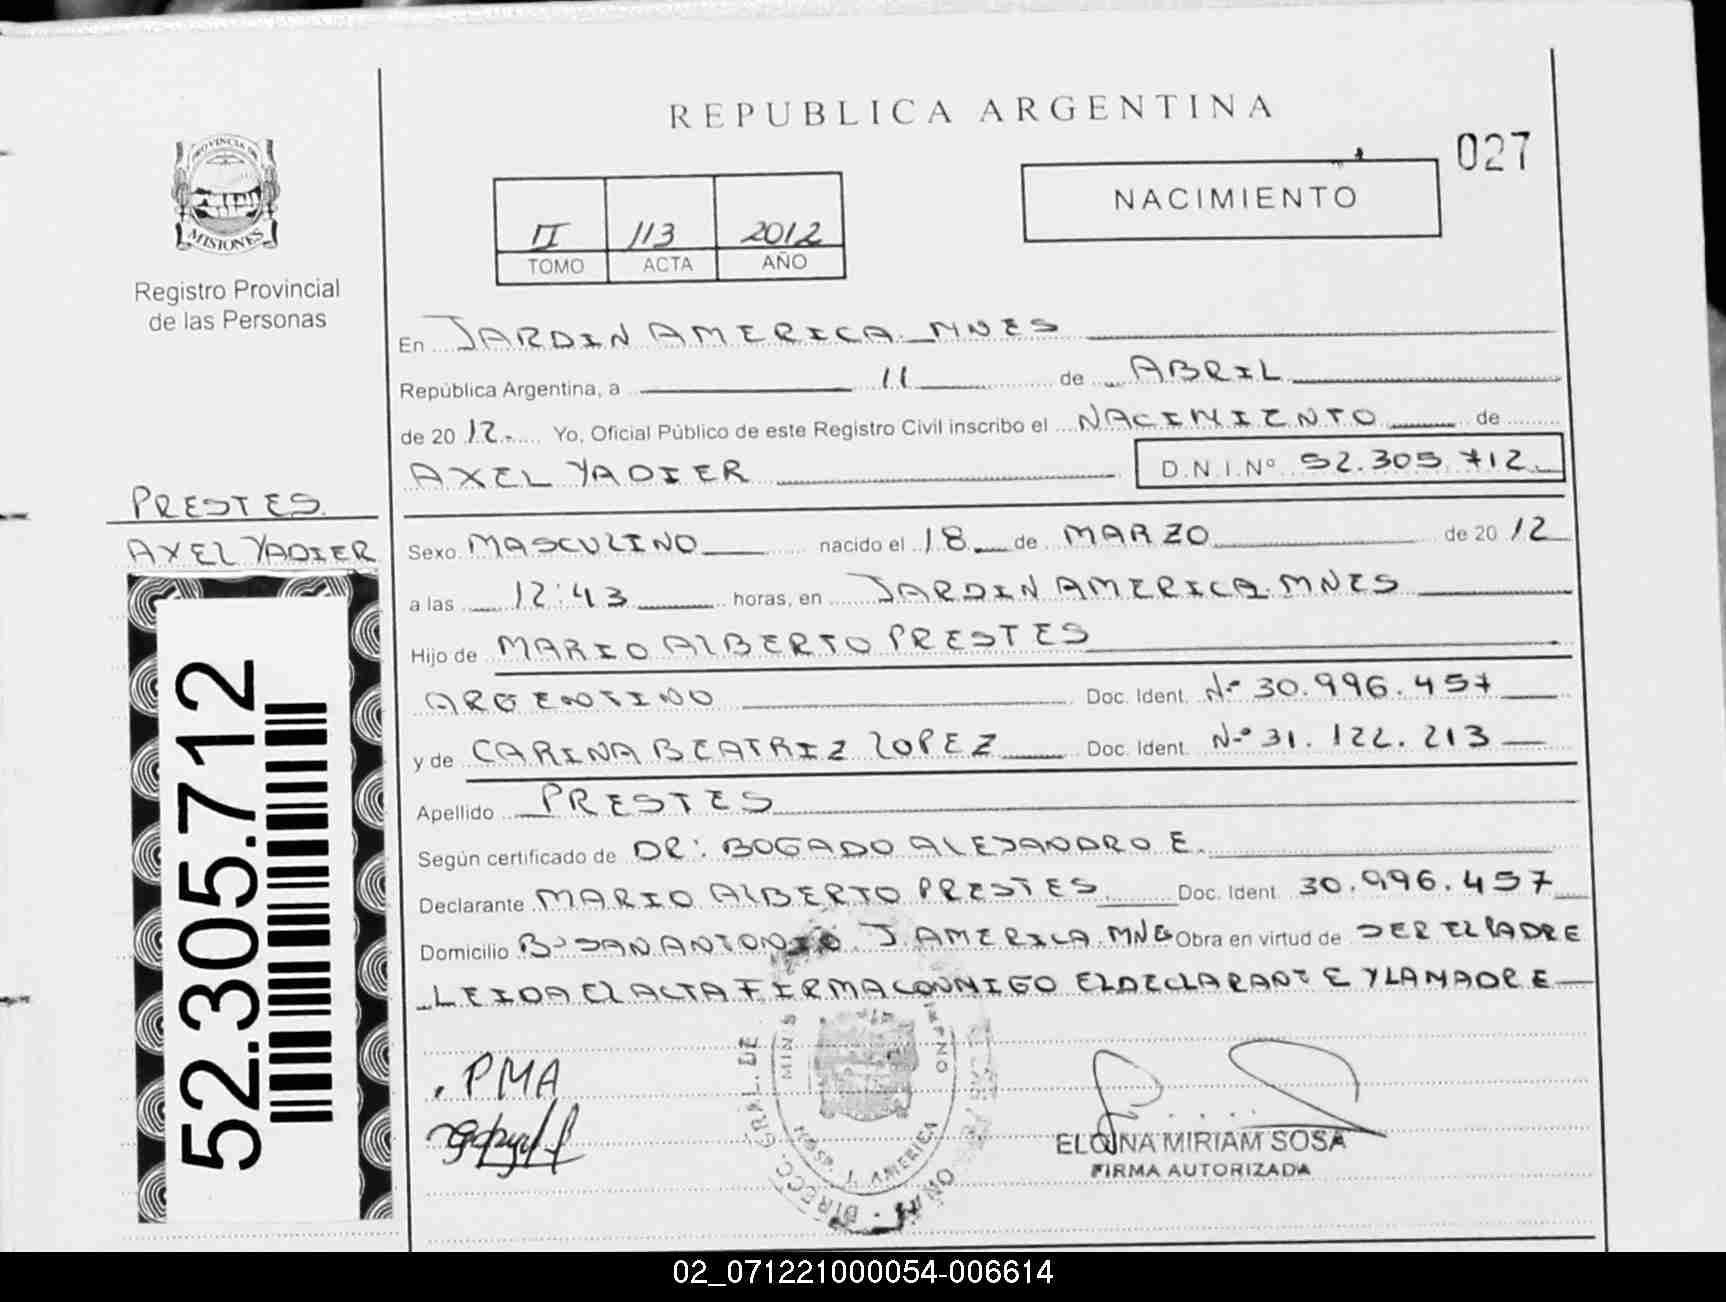 REPUBLICA ARGENTINA
027
NACIMIENTO
II 113 2012
TOMO ACTA AÑO
PROVINCIA DE
MISIONES
Registro Provincial
de las Personas
PRESTES
AXEL YADIER
52.305.712
En JARDIN AMERICA. MNES
República Argentina, a 11 de ABRIL
de 20 12. Yo, Oficial Público de este Registro Civil inscribo el NACIMIENTO de
AXEL YADIER D.N.I.Nº 52.305.712
Sexo MASCULINO nacido el 18 de MARZO de 20 12
a las 12:43 horas, en JARDIN AMERICA. MNES
Hijo de MARIO ALBERTO PRESTES
ARGENTINO Doc. Ident. Nº 30.996.457
y de CARINA BEATRIZ LOPEZ Doc. Ident. Nº 31.122.213
Apellido PRESTES
Según certificado de DR: BOGADO ALEJANDRO E.
Declarante MARIO ALBERTO PRESTES Doc. Ident. 30.996.457
Domicilio Bº SAN ANTONIO J. AMERICA. MNES Obra en virtud de SER EL PADRE
LEIDA EL ACTA FIRMA CONMIGO EL DECLARANTE Y LA MADRE
PMA
DIRECC. GRAL. DE
AMERICA
ELGINA MIRIAM SOSA
FIRMA AUTORIZADA
02_071221000054-006614